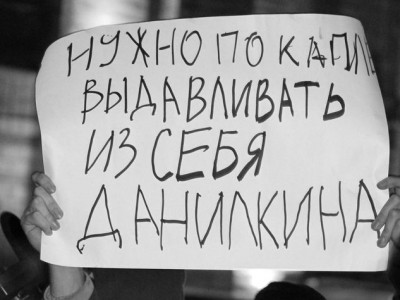 НУЖНО ПО КАПЛЕ
ВЫДАВЛИВАТЬ
ИЗ СЕБЯ
ДАНИЛКИНА